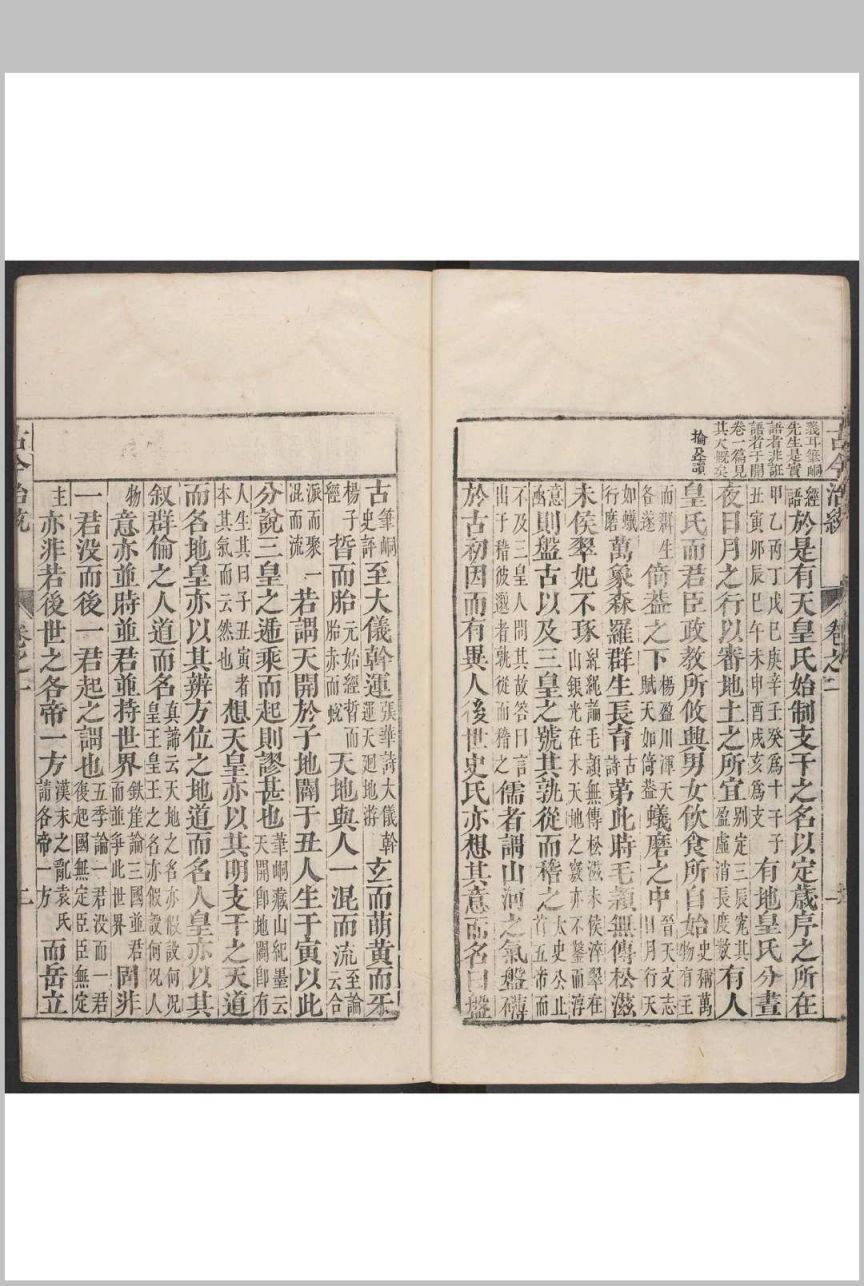 古今治統
卷之一
一
義耳筆峒
先生是實
語者非誑
語者于開
卷一篇見
其大槩矣
掄及讀
經語於是有天皇氏始制支干之名以定歲序之所在
甲乙丙丁戊己庚辛壬癸為十干子
丑寅卯辰巳午未申酉戌亥為支
有地皇氏分晝
夜日月之行以審地土之所宜
別定三辰寃其
盈虛消長度數
有人
皇氏而君臣政教所攸興男女飲食所自始
史稱萬
物有主
而羣生
各遂
倚葢之下
楊盈川渾天
賦天如倚葢
蟻磨之中
晉天文志
日月行天
如蟻
行磨
萬象森羅群生長育
古詩
第此時毛穎無傳松滋
未侯翠妃不琢
毛穎無傳松滋未侯淬翠在
山銀光在水天地之竅亦不鑿而淳
意
則盤古以及三皇之號其孰從而稽之
太史公止
首五帝而
不及三皇人問其故答曰言
出于稽彼邈者孰從而稽之
儒者謂山河之氣盤礴
於古初因而有異人後世史氏亦想其意而名曰盤
古
筆峒
史評
至大儀斡運
張華詩大儀斡
運天廻地游
玄而萌黃而牙
楊子
經
晢而胎
元始經晢而
胎赤而蛻
天地與人一混而流
至論
云合
派而聚一
混而流
若謂天開於子地闢于丑人生于寅以此
分說三皇之遁乘而起則謬甚也
筆峒藏山紀墨云
天開卽地闢卽有
人生其曰子丑寅者
本其氣而云然也
想天皇亦以其明支干之天道
而名地皇亦以其辨方位之地道而名人皇亦以其
叙群倫之人道而名
真諦云天地之名亦假設何况
皇王皇王之名亦假設何况人
物
意亦並時並君並持世界
鉄崖論三國並君
而並爭此世界
固非
一君没而後一君起之謂也
五季論一君没而一君
復起國無定臣臣無定
主
亦非若後世之各帝一方
漢末之亂袁氏
請各帝一方
而岳立
古今治統
卷之一
二